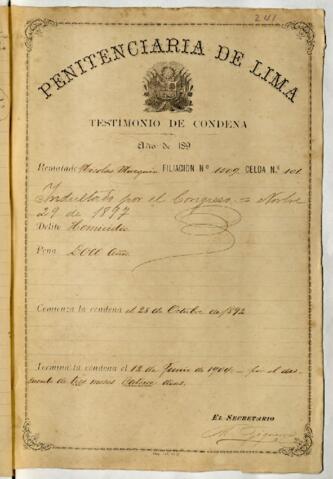 241
PENITENCIARIA DE LIMA
TESTIMONIO DE CONDENA
Año de 189
Rematado Nicolas Marquin FILIACION Nº 1509 CELDA Nº 101
Indultado por el Congreso = Novbre
29 de 1897
Delito Homicidio
Pena Doce Años
Comienza la condena el 28 de Octubre de 1892
Termina la condena el 12 de Junio de 1904 - por el des-
cuento de tres meses catorce dias.
EL SECRETARIO